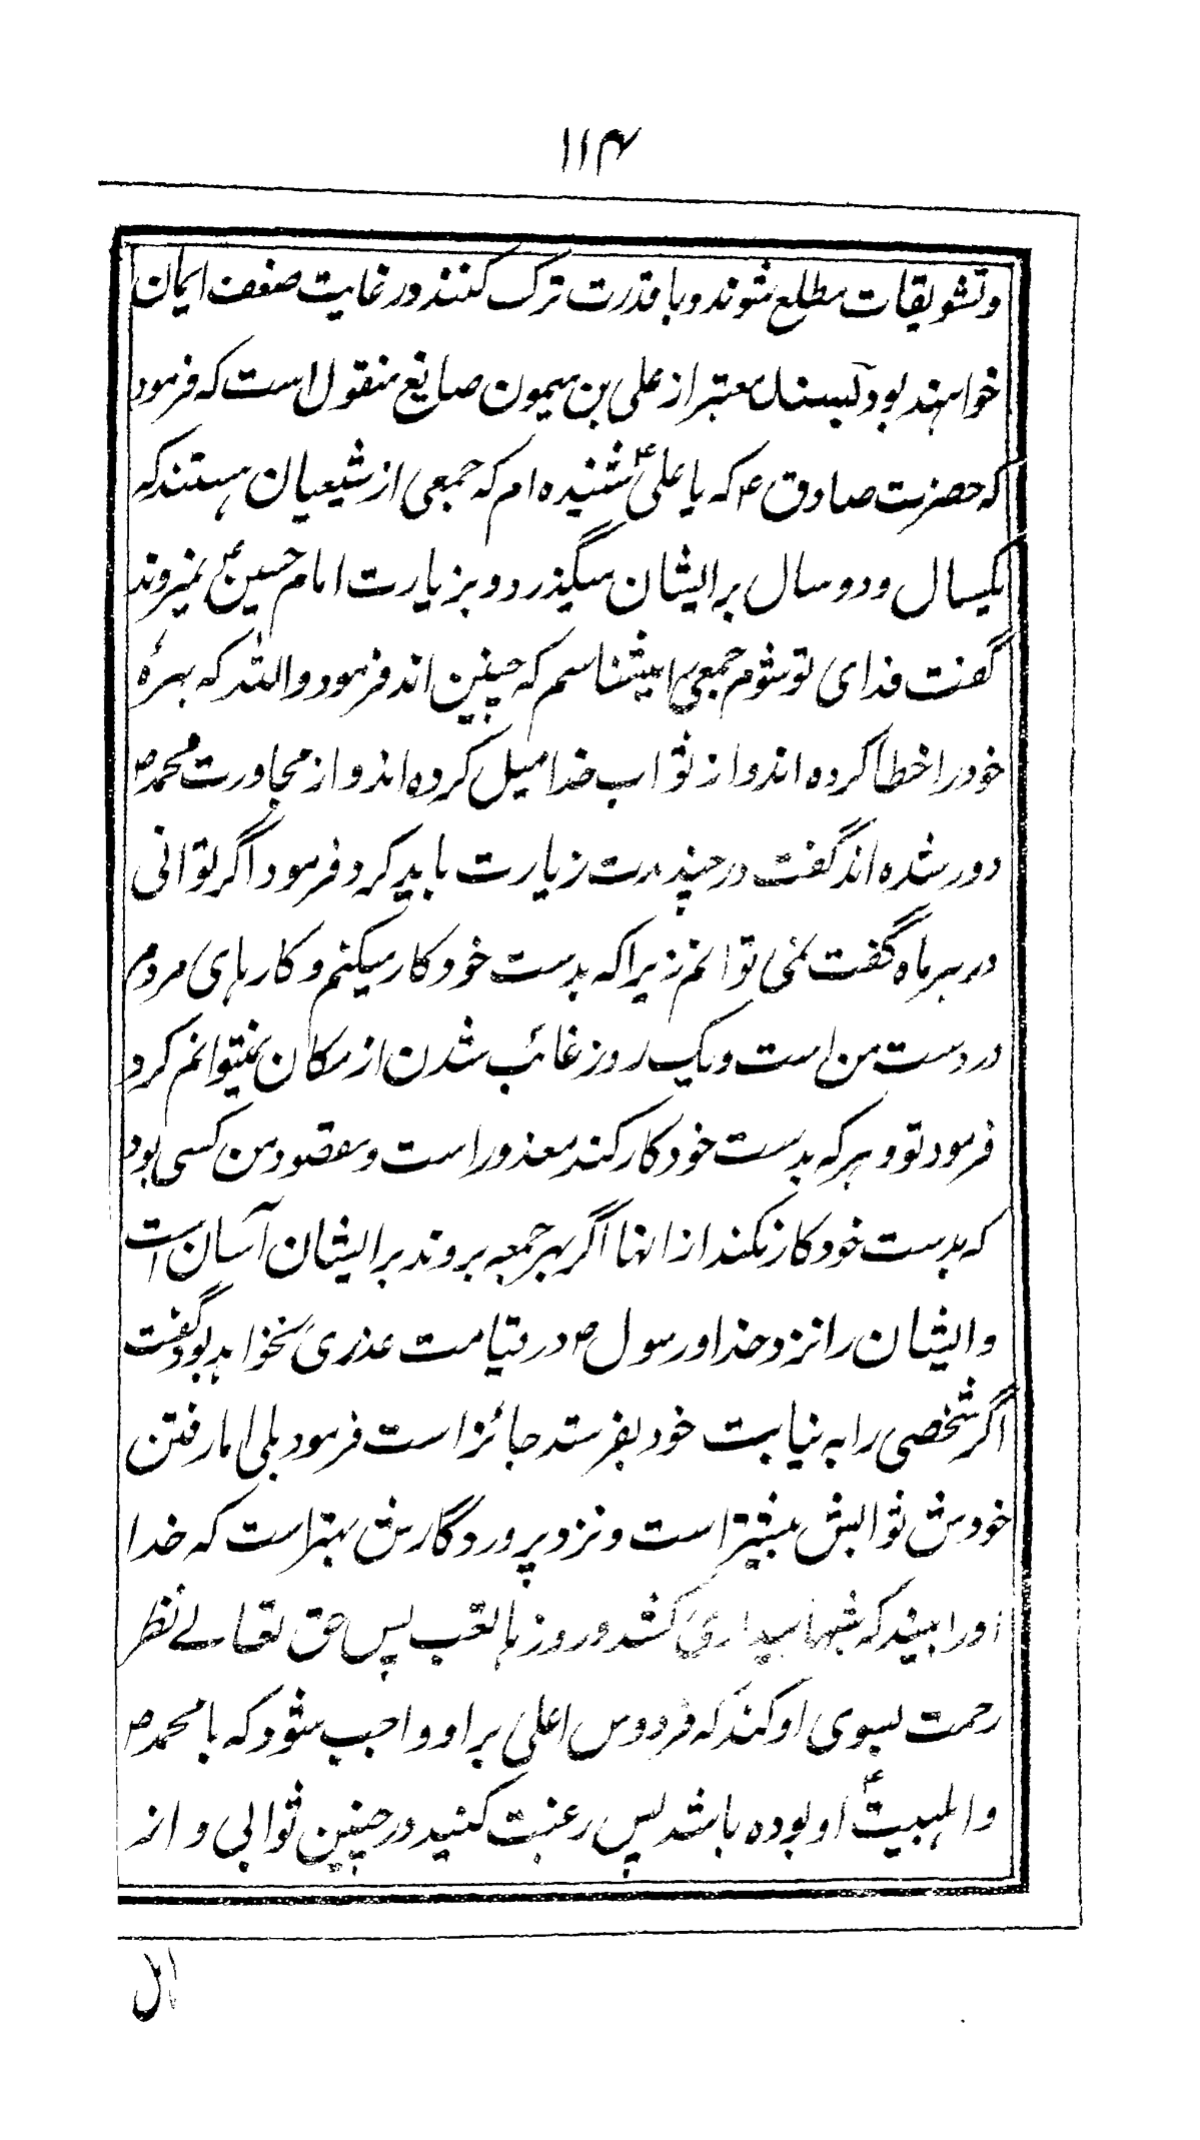 ۱۱۴
وتشویقات مطلع شوند وبا قدرت ترک کنند در غایت ضعف ایمان
خواهند بود بسند معتبر از علی بن میمون صایغ منقول است که فرمود
که حضرت صادق ع که یا علی ع شنیده ام که جمعی از شیعیان هستند که
یکسال ودو سال بر ایشان میگذرد و بزیارت امام حسین ع نمیروند
گفت فدای تو شوم جمعی را میشناسم که چنین اند فرمود والله که بهرهٔ
خود را خطا کرده اند و از ثواب خدا میل کرده اند و از مجاورت محمد ص
دور شده اند گفت در چند مدت زیارت باید کرد فرمود اگر توانی
در هر ماه گفت نمی توانم زیرا که بدست خود کار میکنم و کارهای مردم
در دست من است ویک روز غائب شدن از مکان نمیتوانم کرد
فرمود تو و هر که بدست خود کار کند معذور است و مقصود من کسی بود
که بدست خود کار نکند از انها اگر هر جمعه بروند بر ایشان آسان است
و ایشان را نزد خدا و رسول ص در قیامت عذری نخواهد بود گفت
اگر شخصی را به نیابت خود بفرستد جائز است فرمود بلی اما رفتن
خودش ثوابش بیشتر است و نزد پروردگارش بهتر است که خدا
اورا بیند که شبها بیداری کشد و روزها تعب پس حق تعالے نظر
رحمت بسوی او کند که فردوس اعلی بر او واجب شود که با محمد ص
و اهلبیت ع او بوده باشد پس رغبت کنید در چنین ثوابی و از
اہل